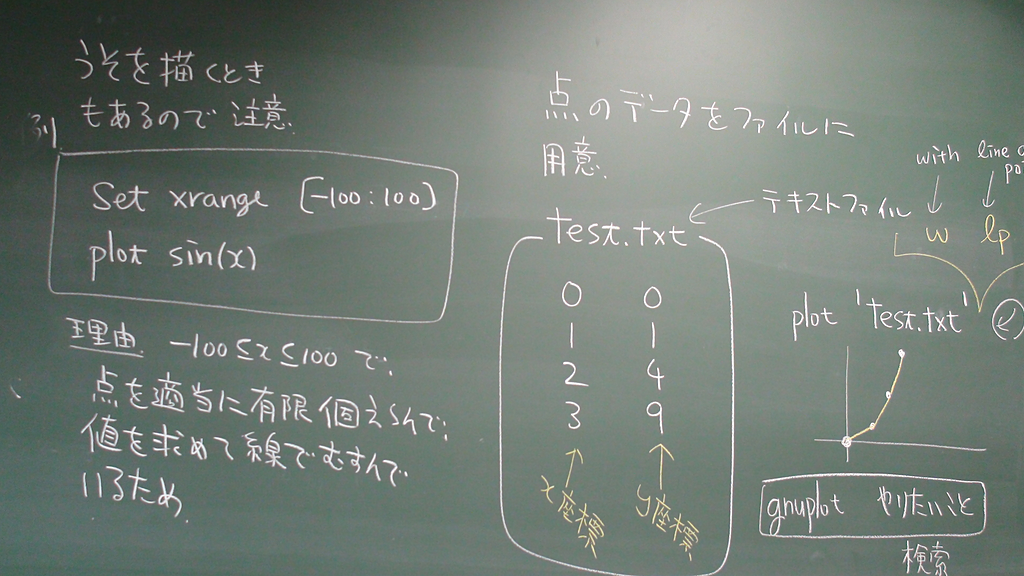 うそを描くとき
もあるので注意
例
Set xrange [-100:100]
plot sin(x)
理由 -100≤x≤100で、
点を適当に有限個えらんで、
値を求めて線でむすんで
いるため
点のデータをファイルに
用意
test.txt
テキストファイル
0 0
1 1
2 4
3 9
x座標 y座標
with line
w lp
plot 'test.txt'
gnuplot やりたいこと
検索